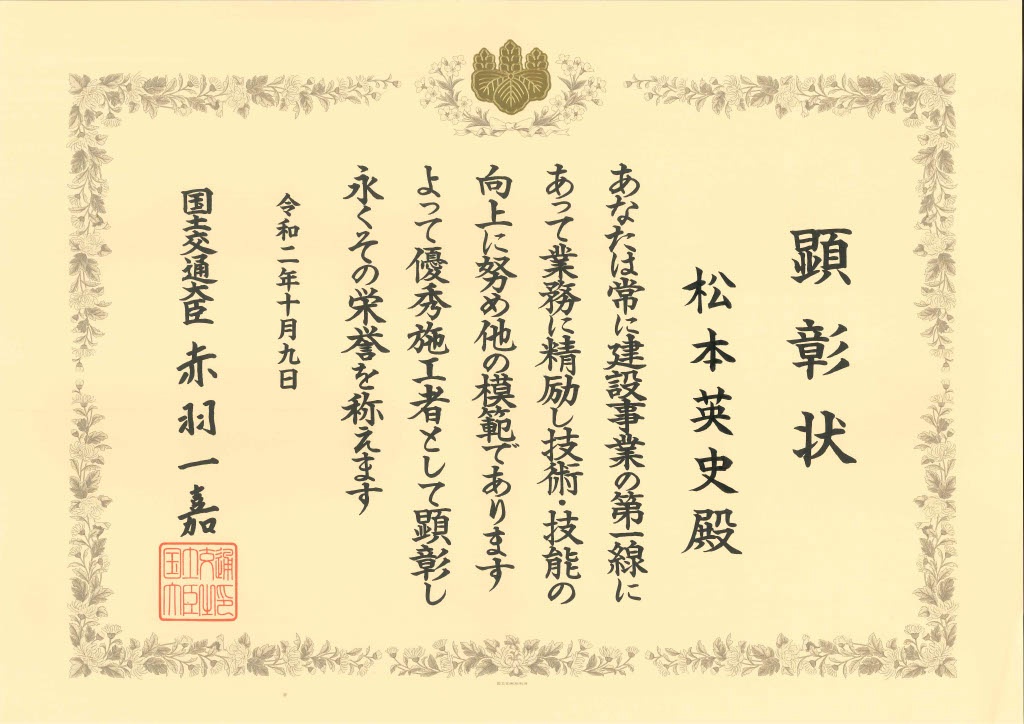 顕彰状
松本英史殿
あなたは常に建設事業の第一線に
あって業務に精励し技術・技能の
向上に努め他の模範であります
よって優秀施工者として顕彰し
永くその栄誉を称えます
令和二年十月九日
国土交通大臣 赤羽一嘉
国土交通大臣之印